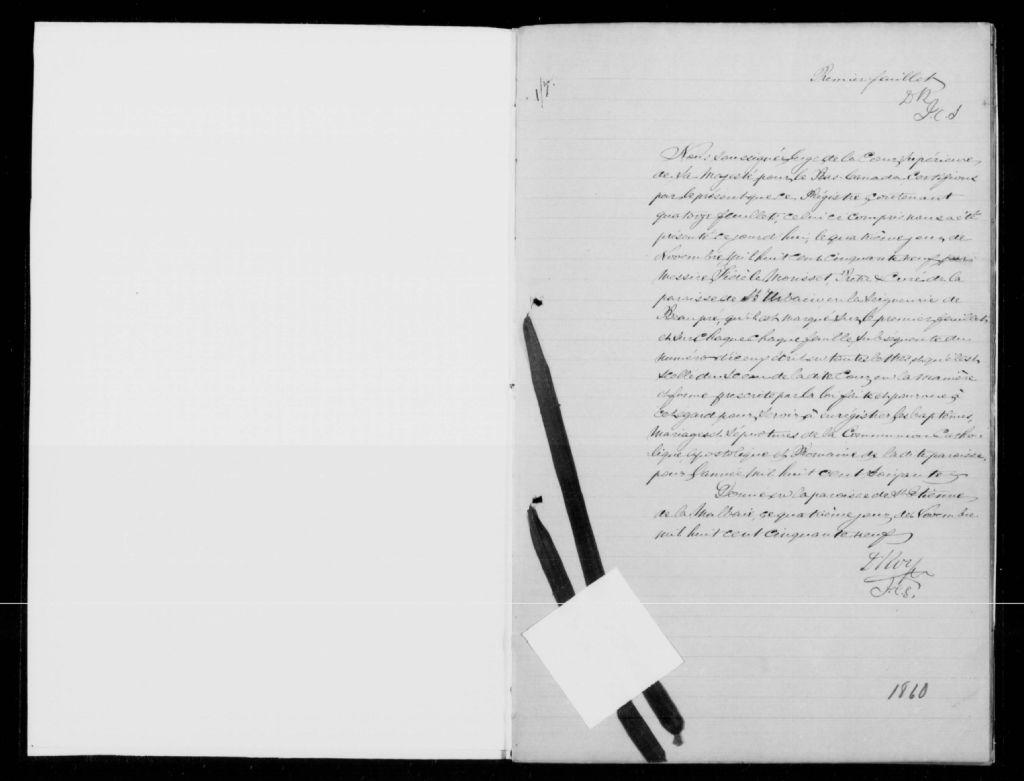 1/7.
Premier feuillet
DR
J.C.S
Nous soussigné Juge de la Cour Supérieure
de Sa Majesté pour le Bas-Canada, Certifions
par le présent que ce Régistre contenant
quatorze feuillets, celui ci compris nous a été
présenté ce jourd'hui, le quatrième jour de
Novembre mil huit cent cinquante neuf par
Messire Mousset, Ptre & Curé de la
paroisse de St Urbain en la Seigneurie de
Beaupré, qu'il est marqué sur le premier feuillet
et sur chaque chaque feuille subséquente du
numéro d'icelui écrit en toutes lettres et qu'il est
scellé du Sceau de la dite Cour en la manière
et forme prescrite par la loi faite et pourvue à
cet égard pour servir à enrégistrer les baptêmes,
Mariages et Sépultures de la Communion Catho-
lique Apostolique et Romaine de la dite paroisse,
pour l'année mil huit cent soixante
Donné en la paroisse de St Etienne
de la Malbaie, ce quatrième jour de Novembre
mil huit cent cinquante neuf
D Roy
J.C.S.
1860